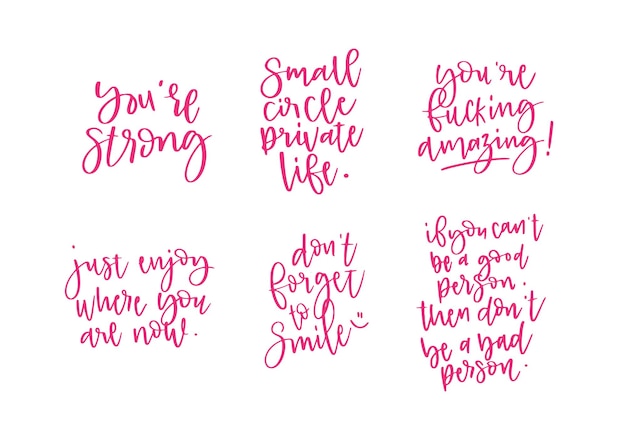 you're
strong
Small
circle
private
life.
you're
fucking
amazing!
just enjoy
where you
are now.
don't
forget
to
smile
if you can't
be a good
person.
then don't
be a bad
person.